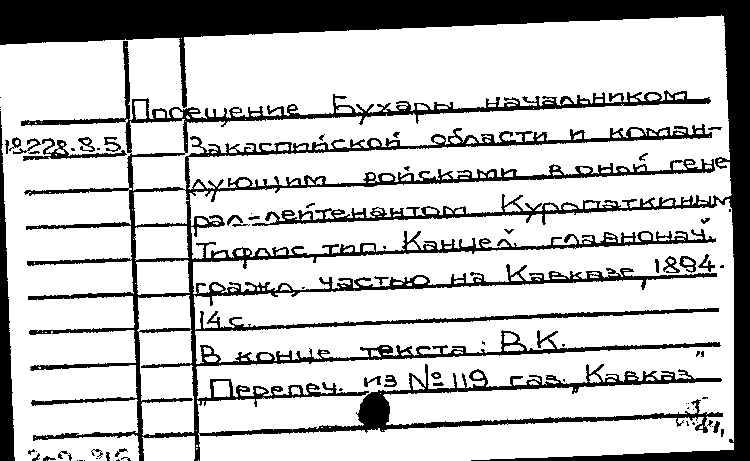 Посещение Бухары начальником
18.228.8.5. Закаспийской области и коман-
дующим войсками в оной гене-
рал-лейтенантом Куропаткиным
Тифлис, тип. Канцел. главнонач.
гражд. частью на Кавказе, 1894.
14 с.
В конце текста: В.К.
„Перепеч. из № 119 газ. „Кавказ"